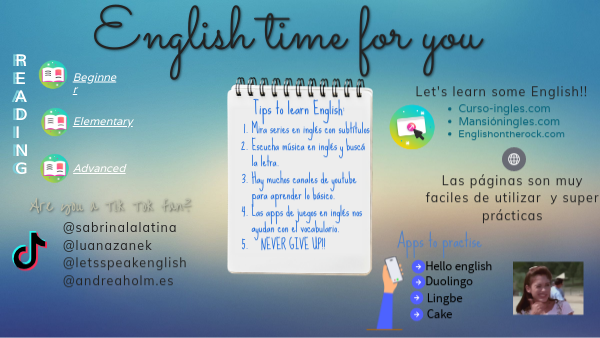 English time for you
READING
Beginne
r
Elementary
Advanced
Are you a Tik Tok fan?
@sabrinalalatina
@luanazanek
@letsspeakenglish
@andreaholm.es
Tips to learn English
1. Mira series en inglés con subtitulos
2. Escucha música en inglés y buscá
la letra.
3. Hay muchos canales de youtube
para aprender lo básico.
4. Las apps de juegos en inglés nos
ayudan con el vocabulario.
5. NEVER GIVE UP!!
Let's learn some English!!
• Curso-ingles.com
• Mansióningles.com
• Englishontherock.com
Las páginas son muy
faciles de utilizar y super
prácticas
Apps to practise
Hello english
Duolingo
Lingbe
Cake